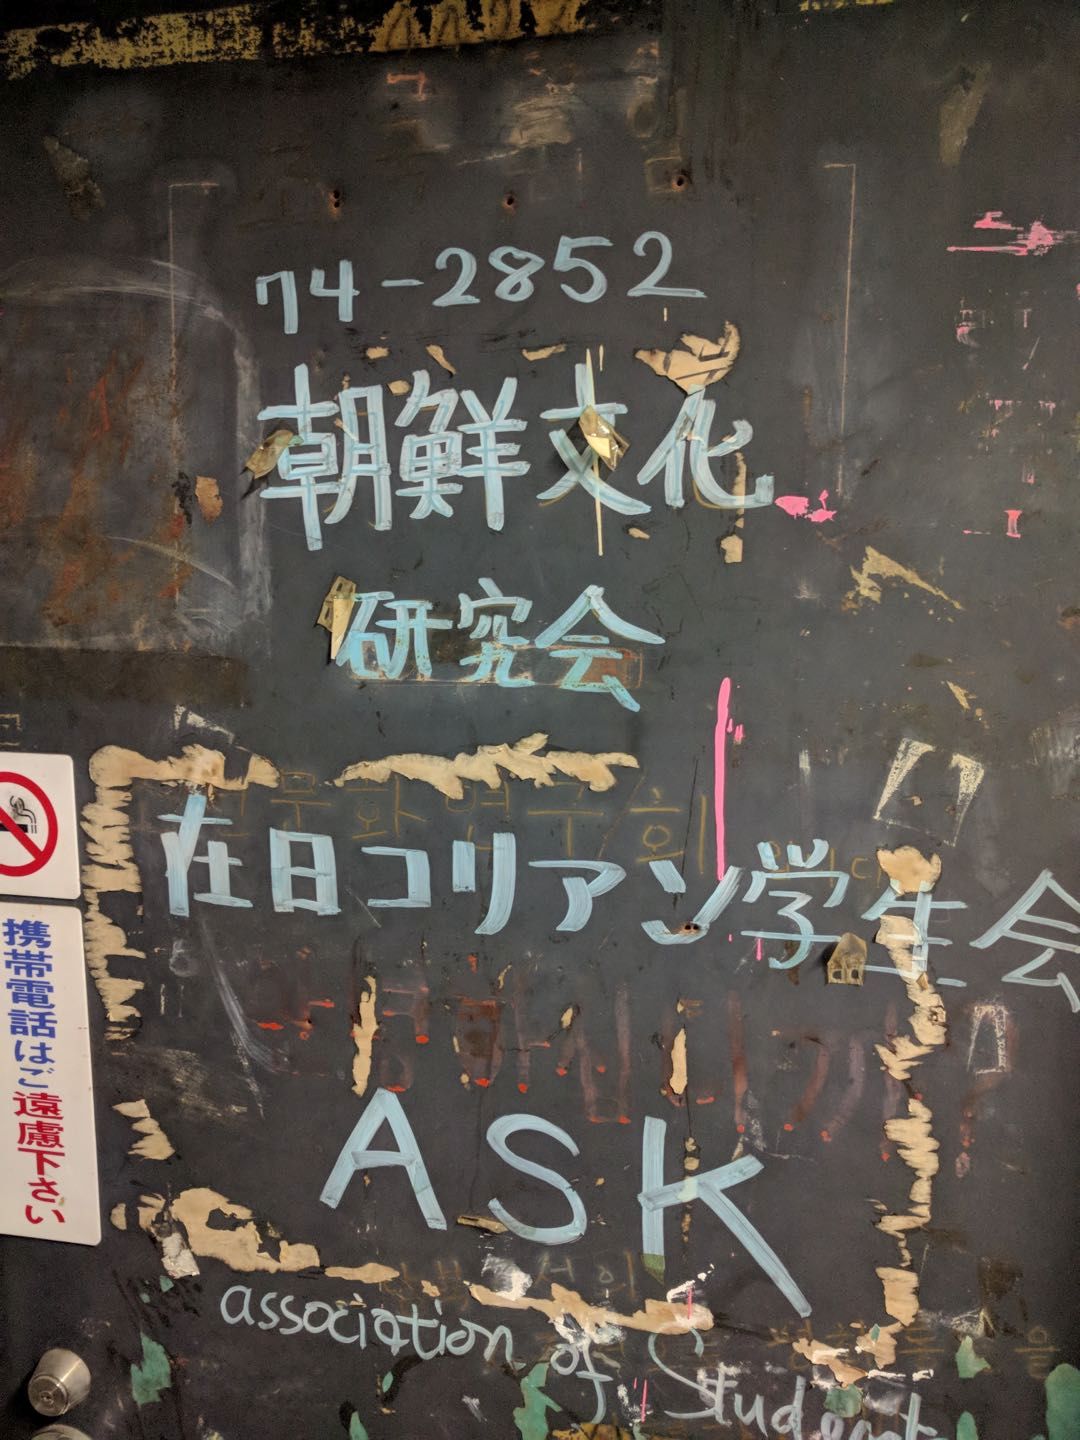 74-2852
朝鮮文化
研究会
문화연구회
在日コリアン学生会
携帯電話はご遠慮下さい
ASK
association of Student